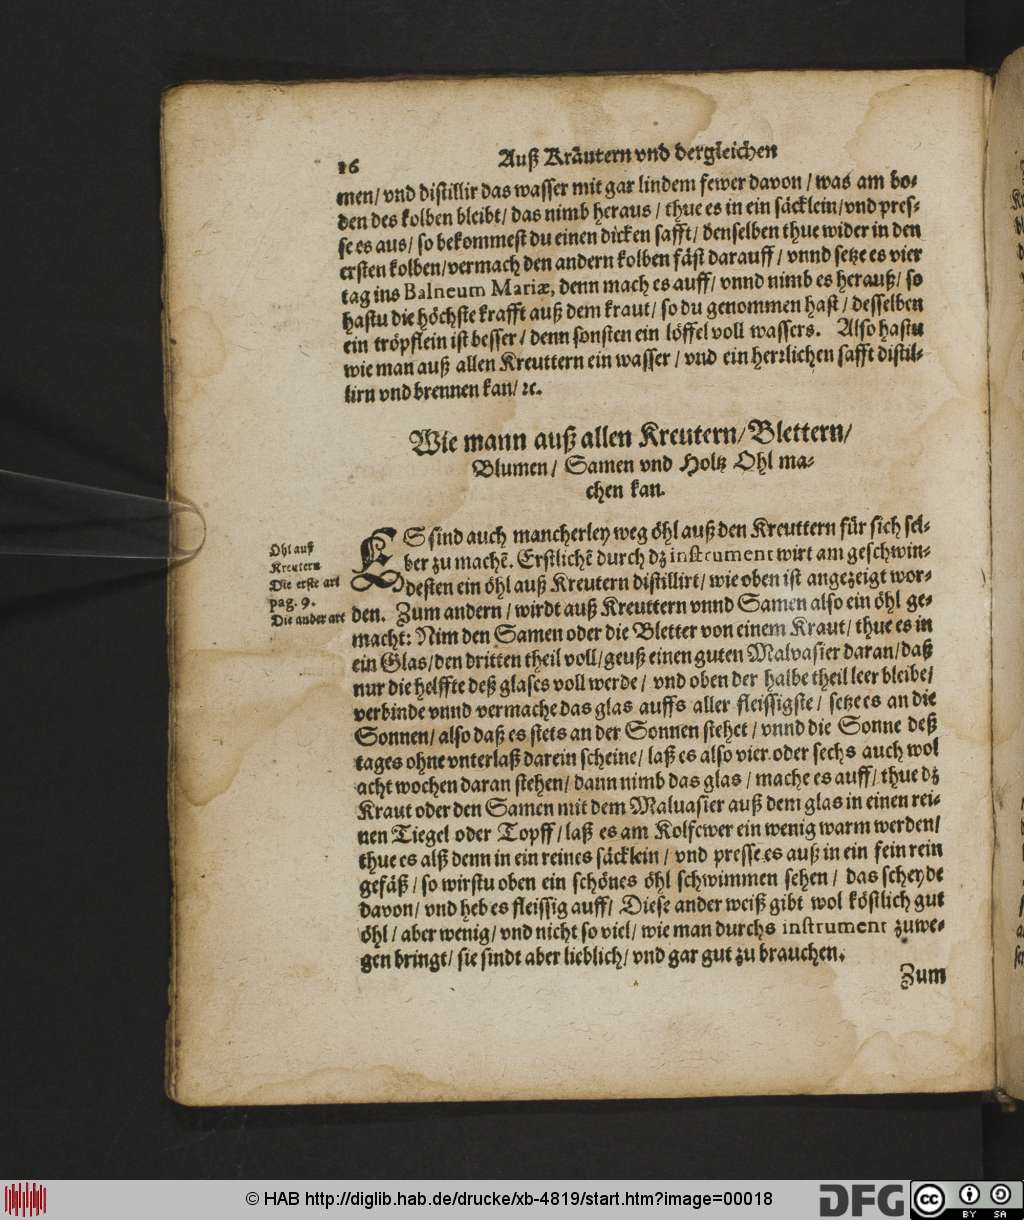 16
Auß Kräutern vnd dergleichen
men/ vnd distillir das wasser mit gar lindem fewer davon / was am bo-
den des kolben bleibt/ das nimb heraus / thue es in ein säcklein/ vnd pres-
se es aus/ so bekommest du einen dicken safft/ denselben thue wider in den
ersten kolben/ vermach den andern kolben fäst darauff/ vnnd setze es vier
tag ins Balneum Mariæ, denn mach es auff/ vnnd nimb es herauß/ so
hastu die höchste krafft auß dem kraut/ so du genommen hast / desselben
ein tröpflein ist besser/ denn sonsten ein löffel voll wassers. Also hastu
wie man auß allen Kreuttern ein wasser / vnd ein herꝛlichen safft distil-
lirn vnd brennen kan/ ꝛc.
Wie mann auß allen Kreutern/ Blettern/
Blumen/ Samen vnd Holtz Ohl ma-
chen kan.
Ohl auß
Kreutern
Die erste art
pag. 9.
Die ander art
ES sind auch mancherley weg öhl auß den Kreuttern für sich sel-
ber zu machẽ. Erstlichẽ durch dz instrument wirt am geschwin-
desten ein öhl auß Kreutern distillirt/ wie oben ist angezeigt wor-
den. Zum andern / wirdt auß Kreuttern vnnd Samen also ein öhl ge-
macht: Nim den Samen oder die Bletter von einem Kraut/ thue es in
ein Glas/ den dritten theil voll/ geuß einen guten Malvasier daran/ daß
nur die helffte deß glases voll werde/ vnd oben der halbe theil leer bleibe/
verbinde vnnd vermache das glas auffs aller fleissigste/ setze es an die
Sonnen/ also daß es stets an der Sonnen stehet/ vnnd die Sonne deß
tages ohne vnterlaß darein scheine/ laß es also vier oder sechs auch wol
acht wochen daran stehen/ dann nimb das glas / mache es auff/ thue dz
Kraut oder den Samen mit dem Maluasier auß dem glas in einen rei-
nen Tiegel oder Topff/ laß es am Kolfewer ein wenig warm werden/
thue es alß denn in ein reines säcklein/ vnd presse es auß in ein fein rein
gefäß/ so wirstu oben ein schönes öhl schwimmen sehen/ das scheyde
davon/ vnd heb es fleissig auff/ Diese ander weiß gibt wol köstlich gut
öhl/ aber wenig/ vnd nicht so viel/ wie man durchs instrument zuwe-
gen bringt/ sie sindt aber lieblich/ vnd gar gut zu brauchen.
Zum
© HAB http://diglib.hab.de/drucke/xb-4819/start.htm?image=00018
DFG
cc BY SA